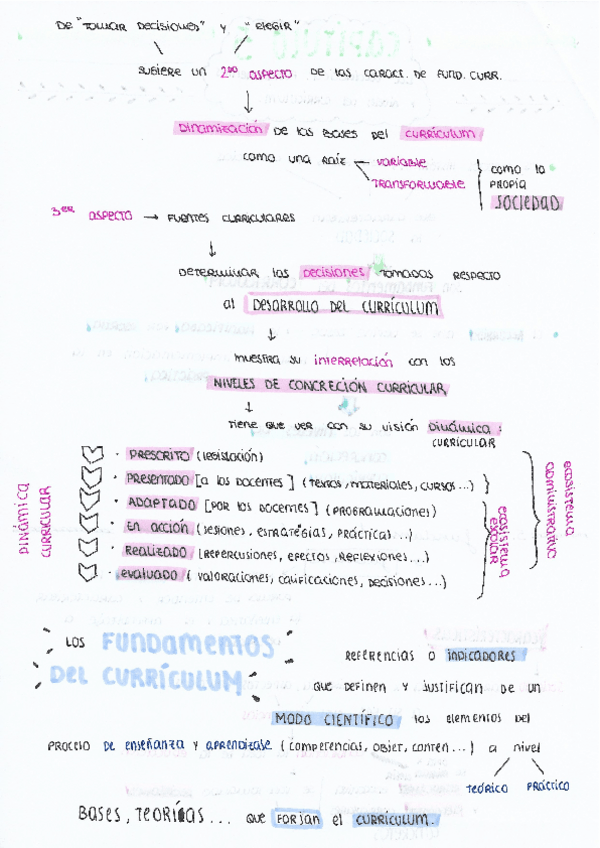 DE "TOMAR DECISIONES" Y "ELEGIR"
SUGIERE UN 2do ASPECTO DE LAS CARACT. DE FUND. CURR.
DINAMIZACIÓN DE LAS BASES DEL CURRÍCULUM
COMO UNA RAÍZ VARIABLE
TRANSFORMABLE
COMO LA
PROPIA
SOCIEDAD
3er ASPECTO → FUENTES CURRICULARES
DETERMINAR LAS DECISIONES TOMADAS RESPECTO
al DESARROLLO DEL CURRÍCULUM
MUESTRA SU INTERRELACIÓN CON LOS
NIVELES DE CONCRECIÓN CURRICULAR
TIENE QUE VER CON SU VISIÓN DINÁMICA:
CURRICULAR
DINÁMICA
CURRICULAR
· PRESCRITO (LEGISLACIÓN)
· PRESENTADO [A LOS DOCENTES] (TEXTOS, MATERIALES, CURSOS...)
· ADAPTADO [POR LOS DOCENTES] (PROGRAMACIONES)
· EN ACCIÓN (SESIONES, ESTRATEGIAS, PRÁCTICAS...)
· REALIZADO (REPERCUSIONES, EFECTOS, REFLEXIONES...)
· EVALUADO (VALORACIONES, CALIFICACIONES, DECISIONES...)
ECOSISTEMA
ESCOLAR
ECOSISTEMA
ADMINISTRATIVO
LOS FUNDAMENTOS
DEL CURRÍCULUM
REFERENCIAS O INDICADORES
QUE DEFINEN Y JUSTIFICAN DE UN
MODO CIENTÍFICO LOS ELEMENTOS DEL
PROCESO DE ENSEÑANZA Y APRENDIZAJE (COMPETENCIAS, OBJET, CONTEN...) A NIVEL
TEÓRICO PRÁCTICO
BASES, TEORÍAS... QUE FORJAN el CURRÍCULUM.